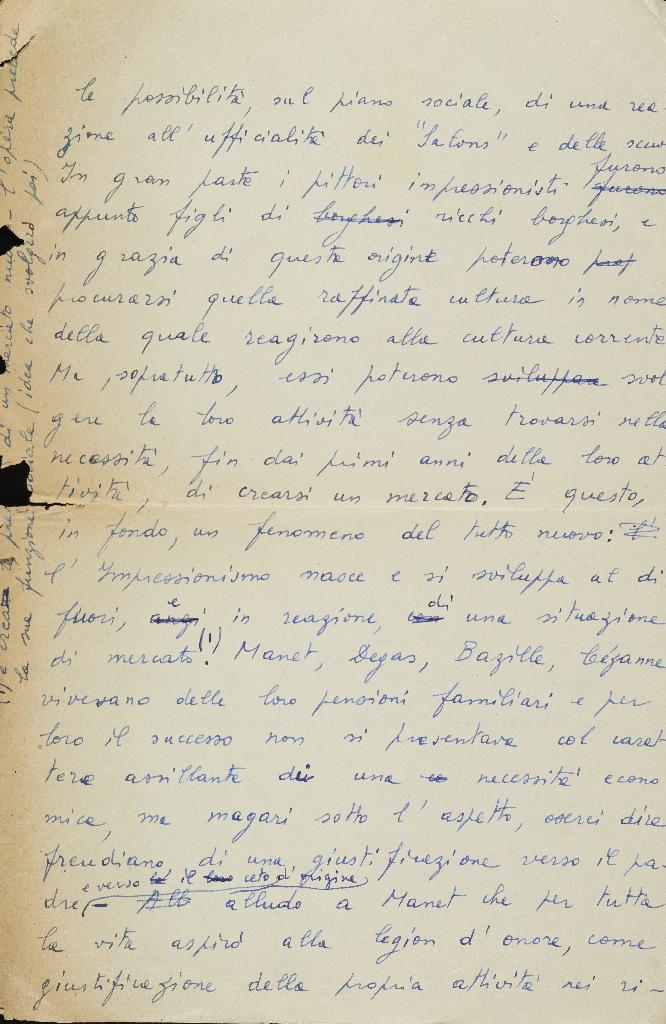 la possibilità, sul piano sociale, di una rea
zione all'ufficialità dei "Salons" e delle scuo
In gran parte i pittori impressionisti furono furono
appunto figli di borghesi ricchi borghesi, e
in grazia di questa origine poterono prof
procurarsi quella raffinata cultura in nome
della quale reagirono alla cultura corrente
Ma, sopratutto, essi poterono sviluppare svol
gere la loro attività senza trovarsi nella
necessità, fin dai primi anni della loro at
tività, di crearsi un mercato. È questo,
in fondo, un fenomeno del tutto nuovo:
l'Impressionismo nasce e si sviluppa al di
fuori, anzi e in reazione, di una situazione
di mercato(1)! Manet, Degas, Bazille, Cézanne
vivevano delle loro pensioni familiari e per
loro il successo non si presentava col carat
tere assillante di una necessità econo
mica, ma magari sotto l'aspetto, oserei dire
freudiano, di una giustificazione verso il pa-
e verso il ceto d'origine
dre, – alludo a Manet che per tutta
la vita aspirò alla legion d'onore, come
giustificazione della propria attività nei ri-
(1) e creata di un mercato – l'opera precede
la sua funzione sociale (idea che svolgerò poi)